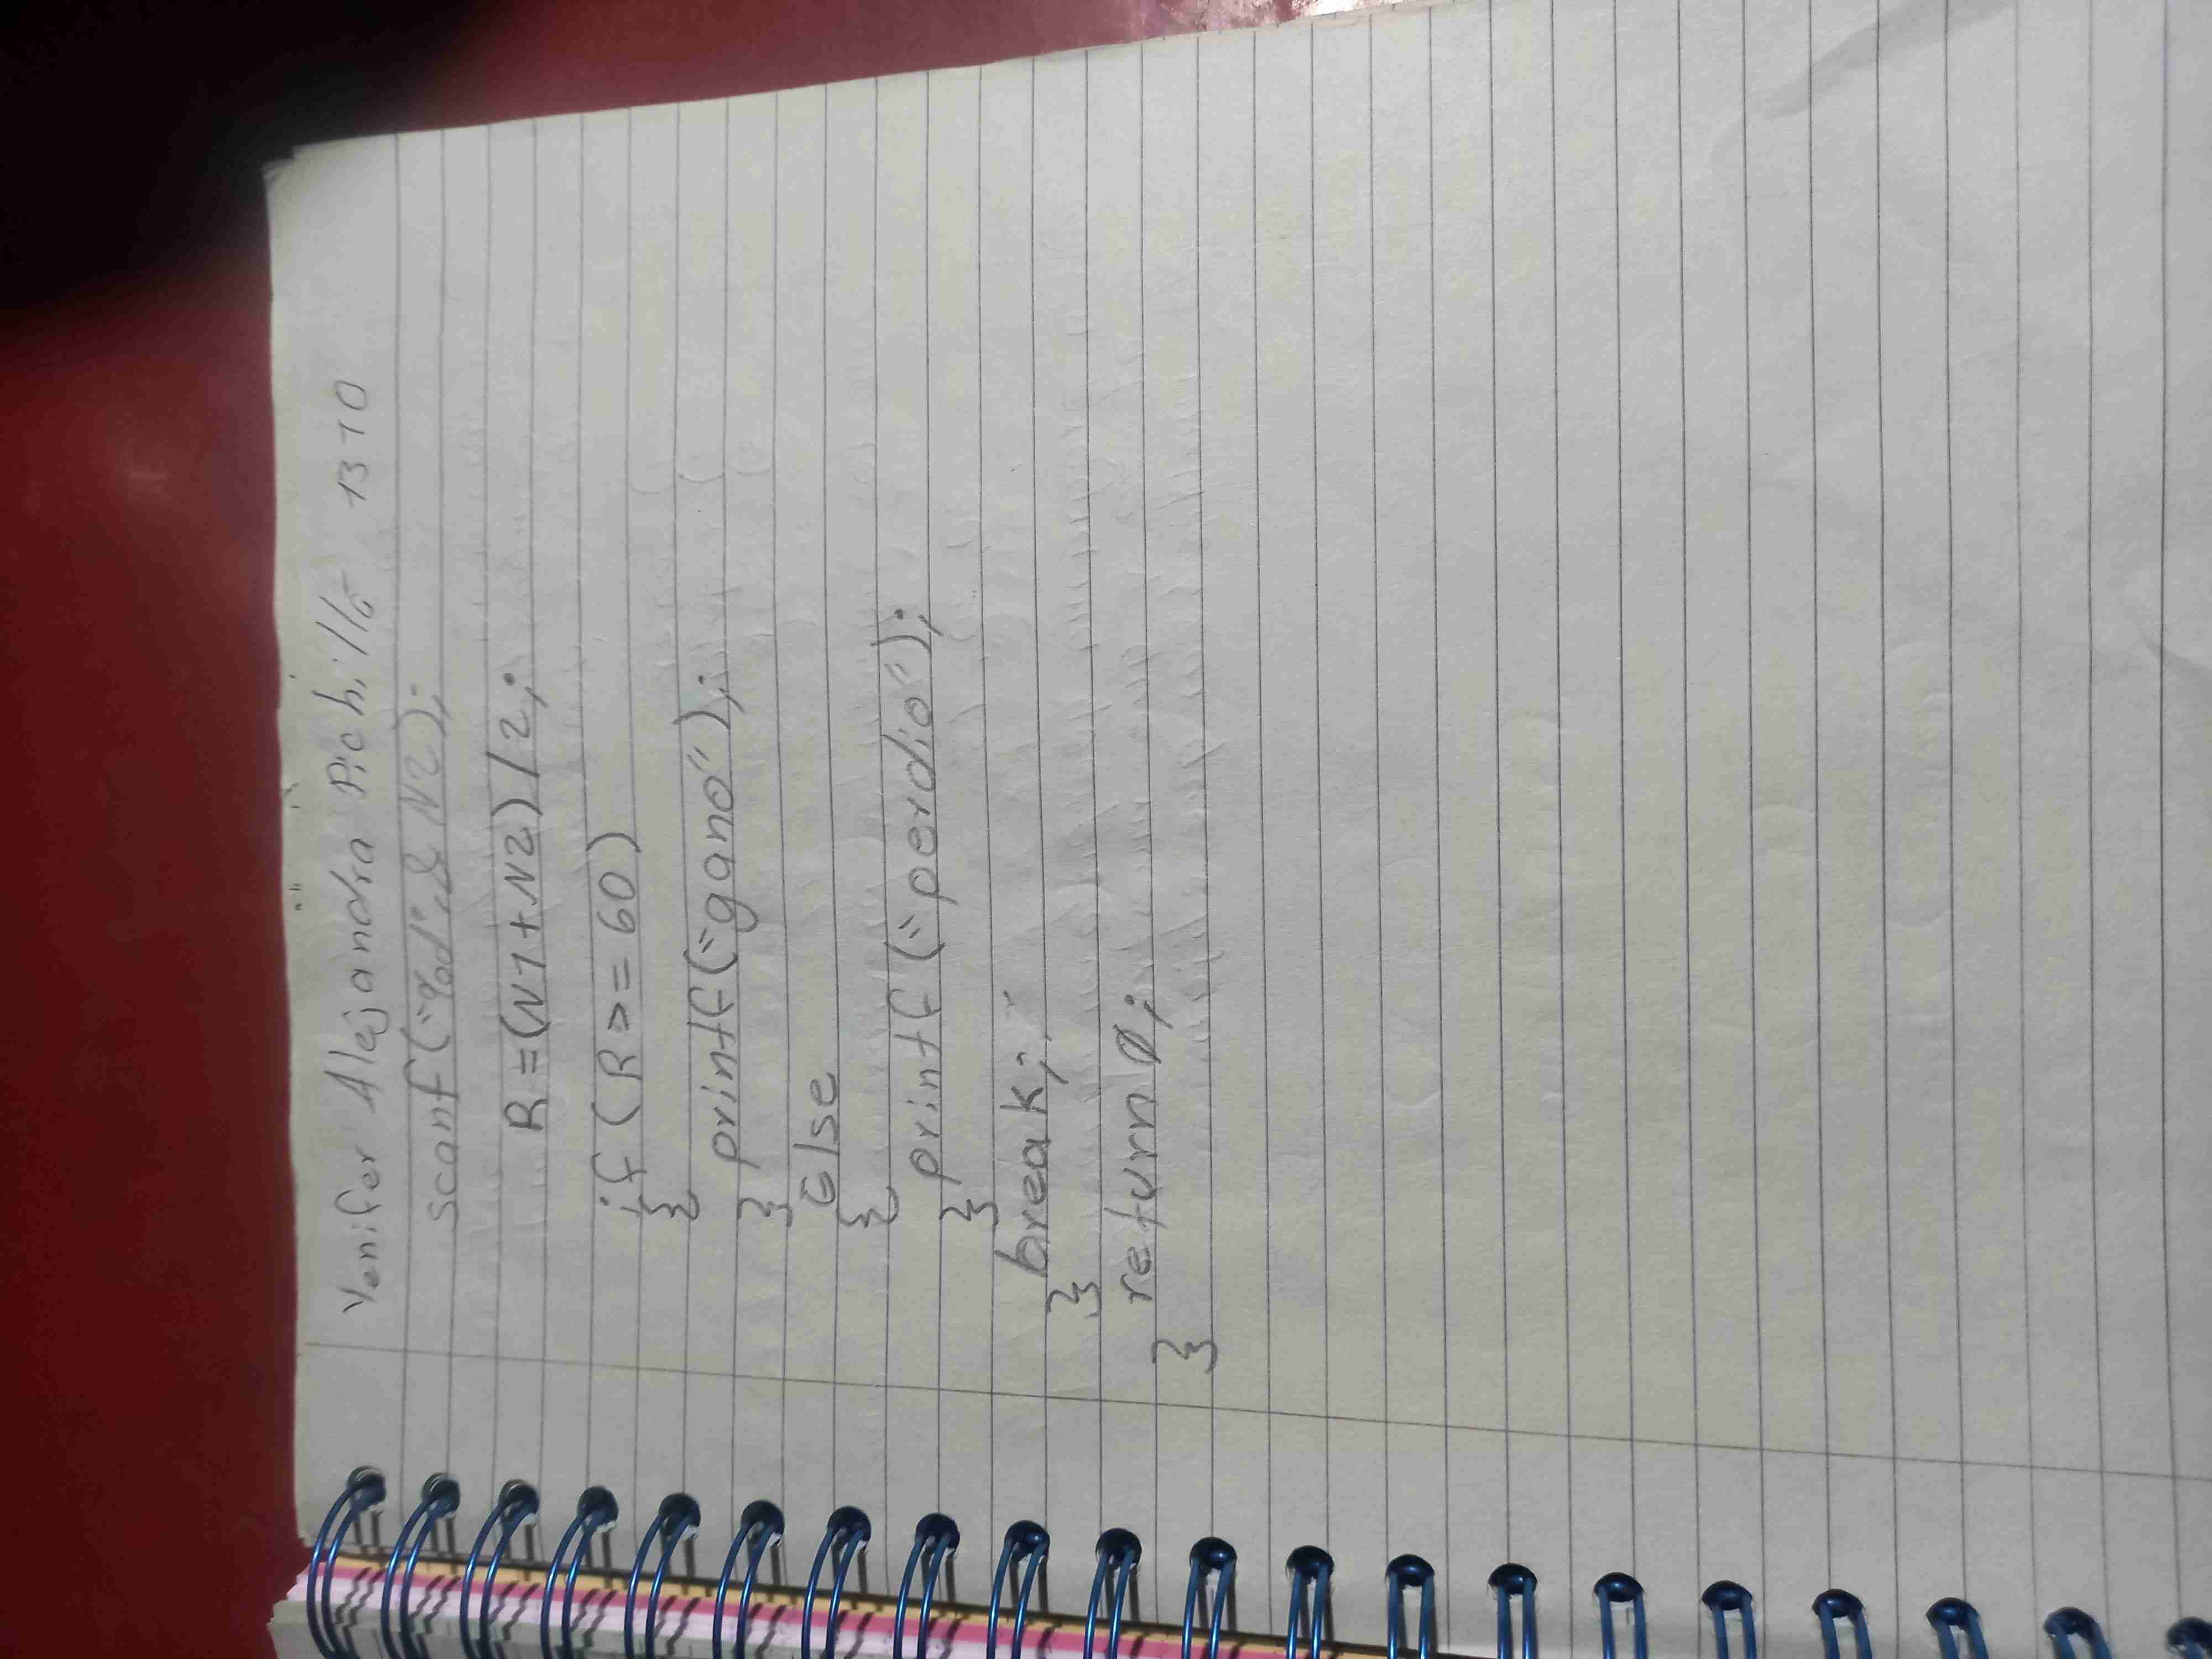 Yenifer Alejandra Pichilla 1310
scanf("%d",&N2);
R=(N1+N2)/2;
if (R>=60)
{
printf("ganó");
}
Else
{
printf("perdio");
}
break;
}
return 0;
}